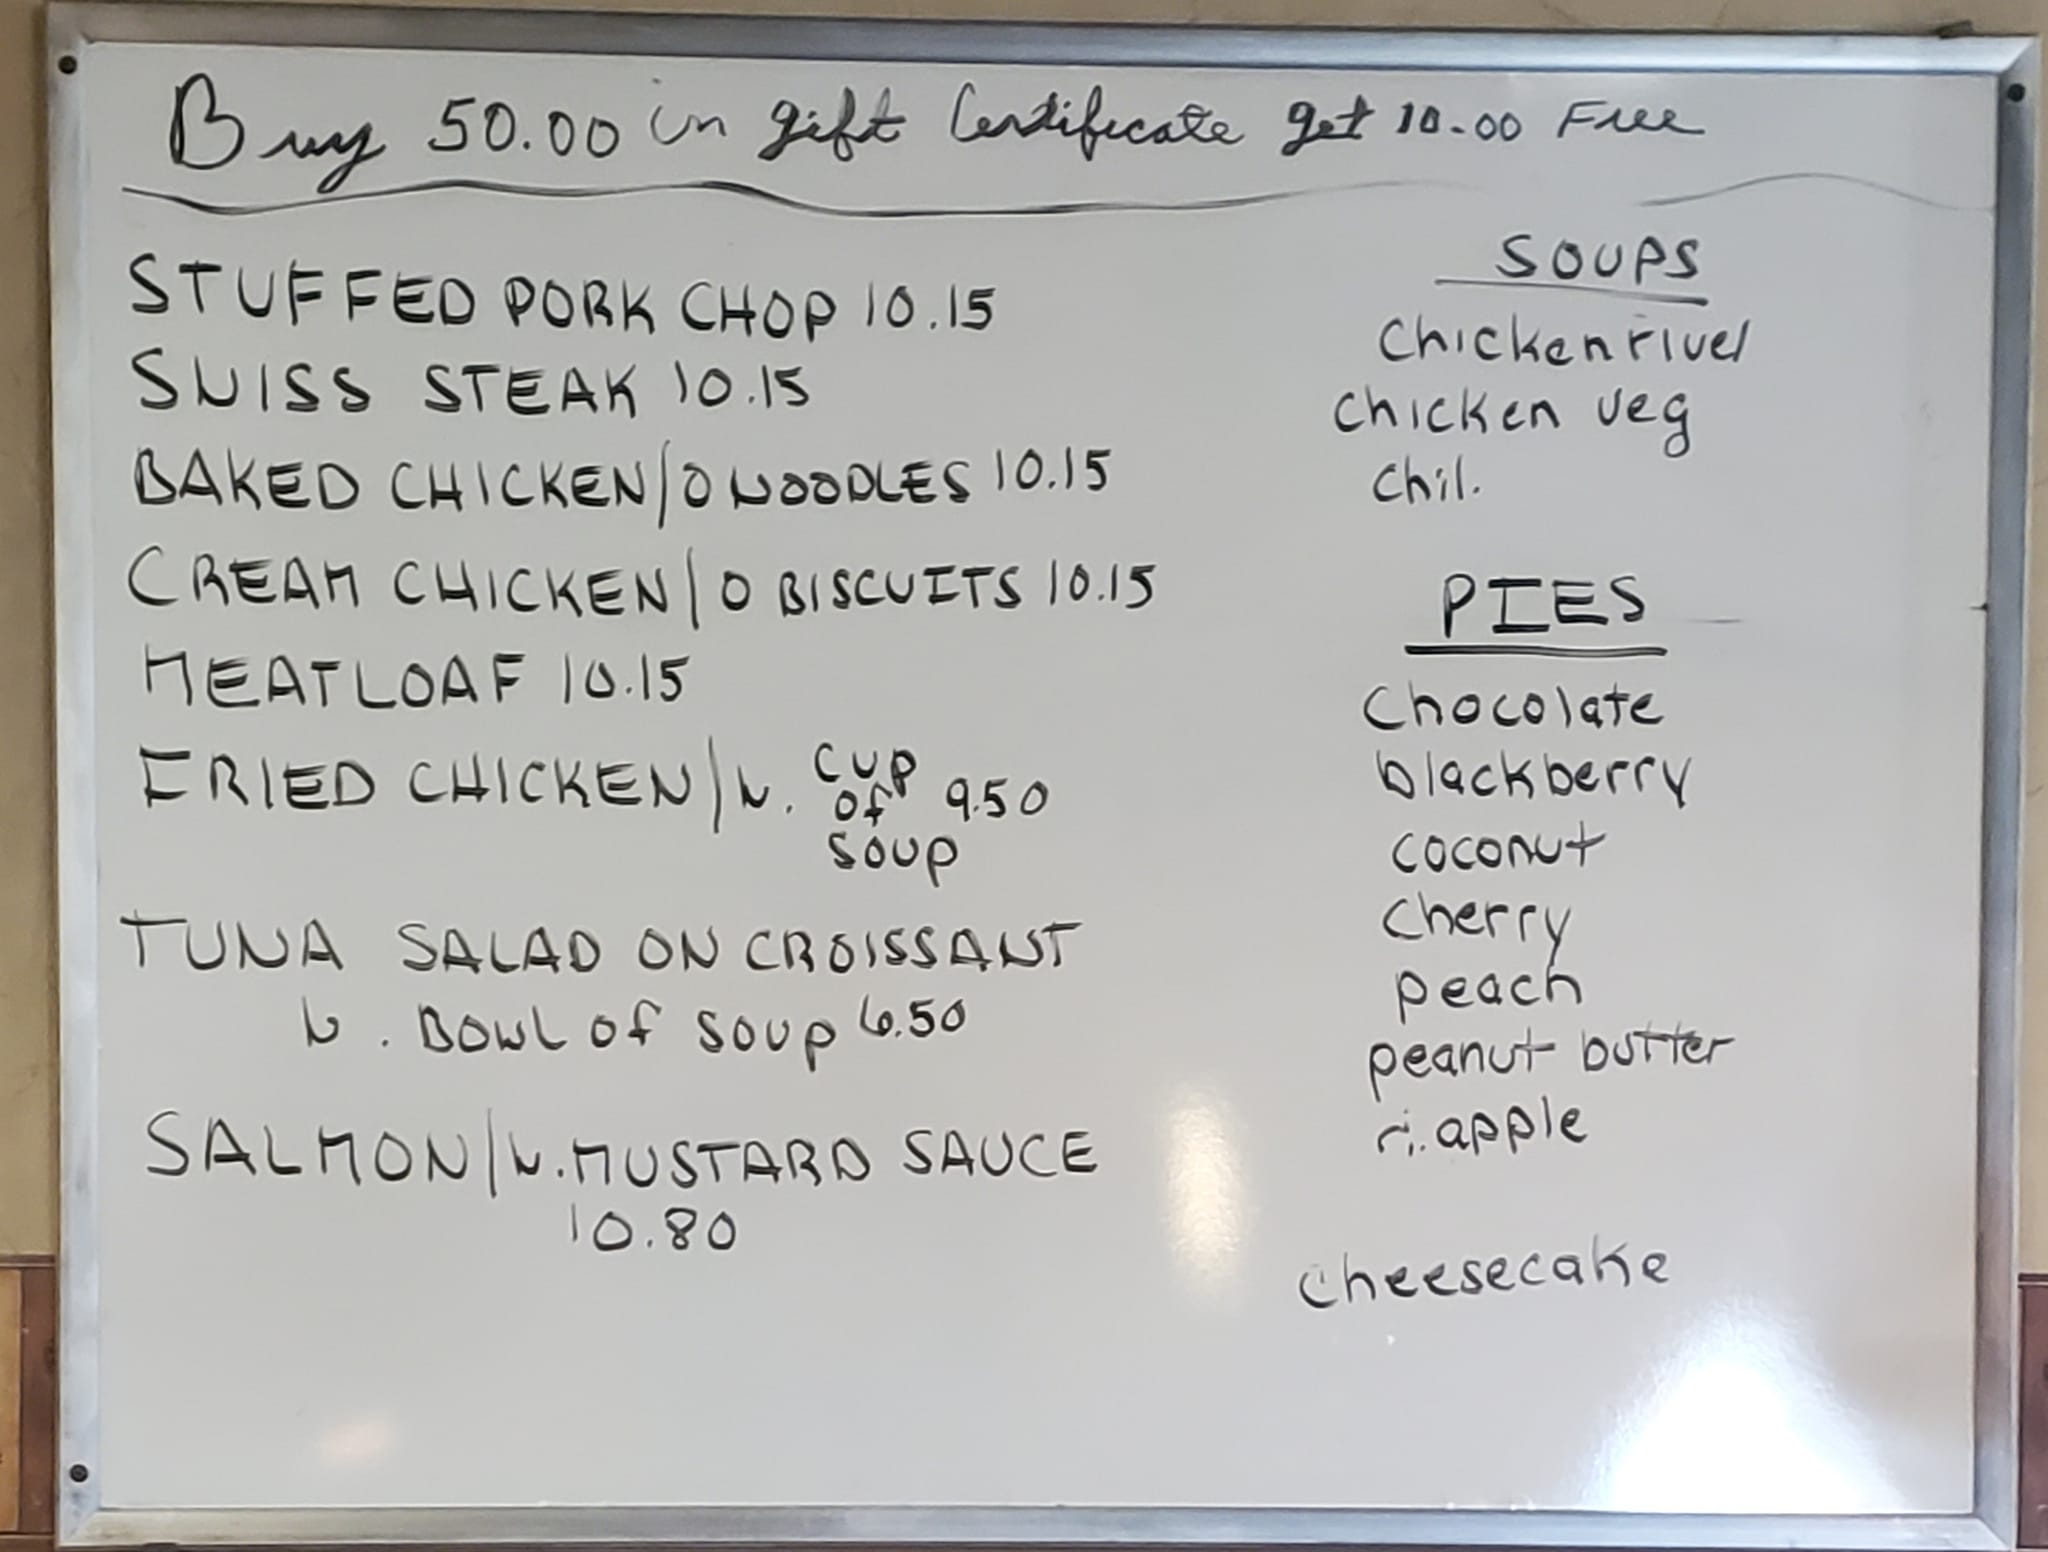 Buy 50.00 in gift Certificate get 10.00 Free
STUFFED PORK CHOP 10.15
SWISS STEAK 10.15
BAKED CHICKEN/O NOODLES 10.15
CREAM CHICKEN/O BISCUITS 10.15
MEATLOAF 10.15
FRIED CHICKEN/W. CUP OF SOUP 9.50
TUNA SALAD ON CROISSANT
W. BOWL OF SOUP 6.50
SALMON/W. MUSTARD SAUCE
10.80
SOUPS
Chicken rivel
Chicken veg
Chil.
PIES
Chocolate
blackberry
coconut
cherry
peach
peanut butter
apple
cheesecake